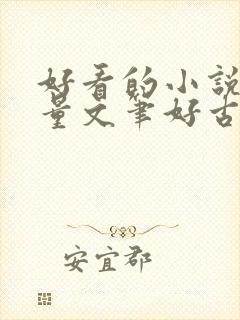 好看的小說
量文筆好古
安宜郡